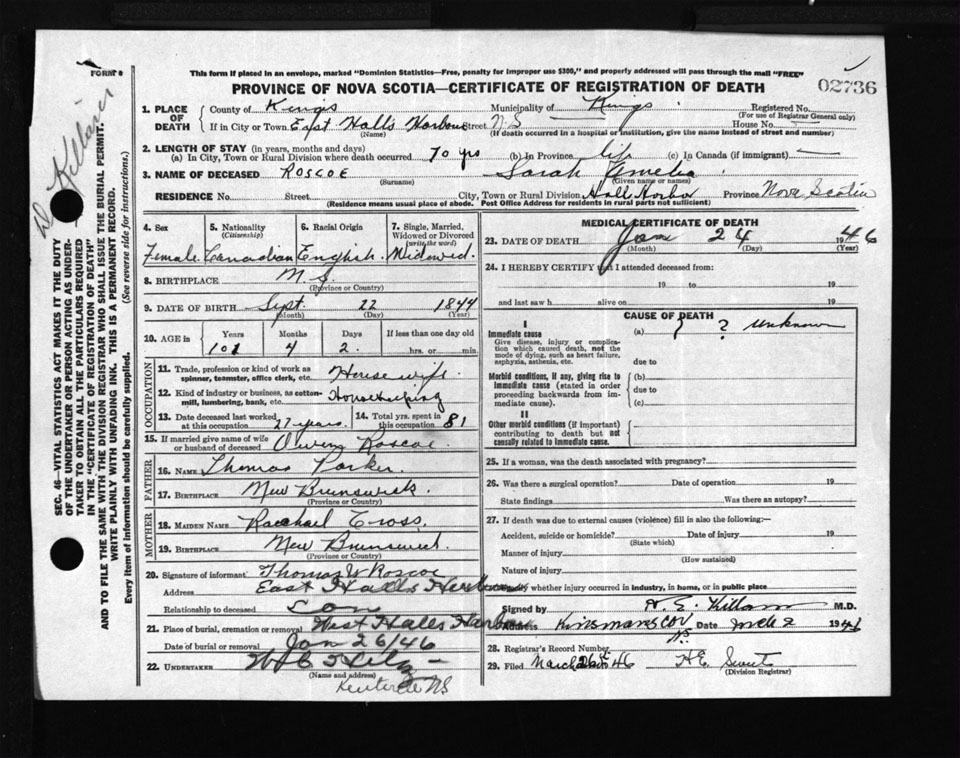 FORM 8
This form if placed in an envelope, marked "Dominion Statistics—Free, penalty for improper use $300," and properly addressed will pass through the mail "FREE"
PROVINCE OF NOVA SCOTIA—CERTIFICATE OF REGISTRATION OF DEATH
02736
Dr Killam
SEC. 46—VITAL STATISTICS ACT MAKES IT THE DUTY
OF THE UNDERTAKER OR PERSON ACTING AS UNDER-
TAKER TO OBTAIN ALL THE PARTICULARS REQUIRED
IN THE "CERTIFICATE OF REGISTRATION OF DEATH"
AND TO FILE THE SAME WITH THE DIVISION REGISTRAR WHO SHALL ISSUE THE BURIAL PERMIT.
WRITE PLAINLY WITH UNFADING INK. THIS IS A PERMANENT RECORD.
Every item of Information should be carefully supplied. (See reverse side for instructions.)
1. PLACE OF DEATH County of Kings Municipality of Kings Registered No.
(For use of Registrar General only)
If in City or Town East Halls Harbour Street N.S House No.
(Name) (If death occurred in a hospital or institution, give the name instead of street and number)
2. LENGTH OF STAY (in years, months and days)
(a) In City, Town or Rural Division where death occurred 70 yrs (b) In Province life (c) In Canada (if immigrant) —
3. NAME OF DECEASED ROSCOE Sarah Amelia
(Surname) (Given name or names)
RESIDENCE No. Street City, Town or Rural Division Halls Harbor Province Nova Scotia
(Residence means usual place of abode. Post Office Address for residents in rural parts not sufficient)
4. Sex 5. Nationality (Citizenship) 6. Racial Origin 7. Single, Married, Widowed or Divorced (write the word)
Female Canadian English Widowed
8. BIRTHPLACE N.S.
(Province or Country)
9. DATE OF BIRTH Sept. 22 1844
(Month) (Day) (Year)
10. AGE in Years Months Days If less than one day old
101 4 2 hrs. or min
OCCUPATION
11. Trade, profession or kind of work as spinner, teamster, office clerk, etc. Housewife
12. Kind of industry or business, as cotton-mill, lumbering, bank, etc. Housekeeping
13. Date deceased last worked at this occupation 27 years 14. Total yrs. spent in this occupation 81
15. If married give name of wife or husband of deceased Owen Roscoe
FATHER
16. NAME Thomas Parker
17. BIRTHPLACE New Brunswick.
(Province or Country)
MOTHER
18. MAIDEN NAME Raechael Cross.
19. BIRTHPLACE New Brunswick
(Province or Country)
20. Signature of informant Thomas W Roscoe
Address East Halls Harbour
Relationship to deceased Son
21. Place of burial, cremation or removal West Halls Harbour
Date of burial or removal Jan 26/46
22. UNDERTAKER
(Name and address)
NS
MEDICAL CERTIFICATE OF DEATH
23. DATE OF DEATH Jan 24 1946
(Month) (Day) (Year)
24. I HEREBY CERTIFY that I attended deceased from:
19 to 19
and last saw h alive on 19
CAUSE OF DEATH
I
Immediate cause (a) ? ? Unknown
Give disease, injury or complica-
tion which caused death, not the
mode of dying, such as heart failure,
asphyxia, asthenia, etc. due to
Morbid conditions, if any, giving rise to (b)
immediate cause (stated in order due to
proceeding backwards from im-
mediate cause). (c)
II
Other morbid conditions (if important)
contributing to death but not
causally related to immediate cause.
25. If a woman, was the death associated with pregnancy?
26. Was there a surgical operation? Date of operation 19
State findings Was there an autopsy?
27. If death was due to external causes (violence) fill in also the following:—
Accident, suicide or homicide? Date of injury 19
(State which)
Manner of injury
(How sustained)
Nature of injury
Specify whether injury occurred in industry, in home, or in public place
Signed by N. E. Killam M.D.
Address Kinsmans Cov NS Date Mch 2 1946
28. Registrar's Record Number
29. Filed March 46 H E. Sweet
(Division Registrar)